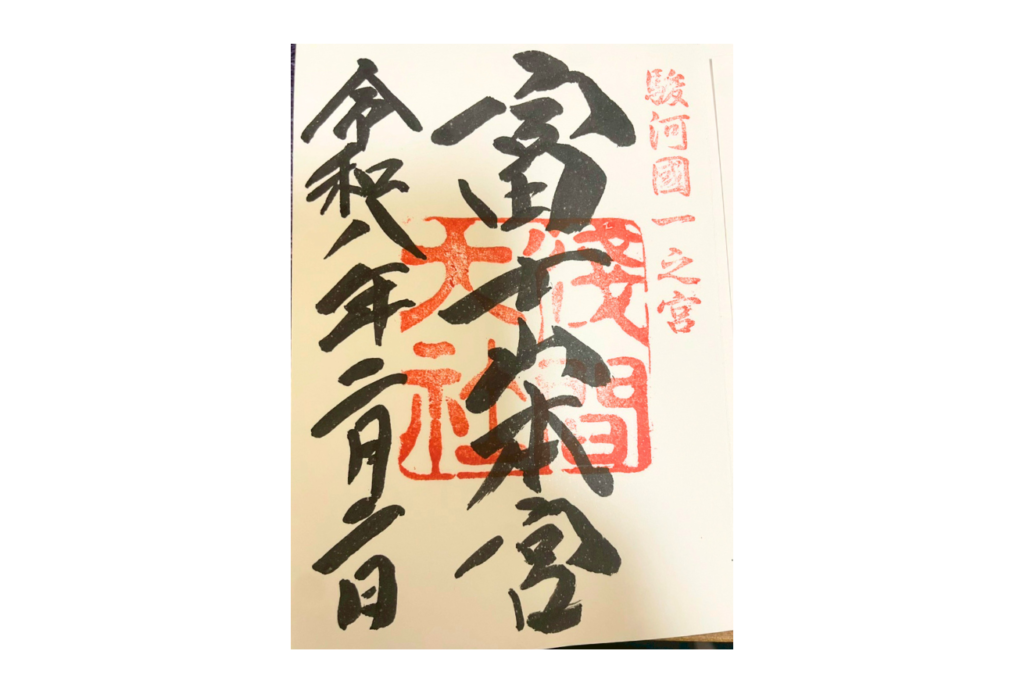 駿河國一之宮
富士山本宮
淺間
大社
令和八年二月二日